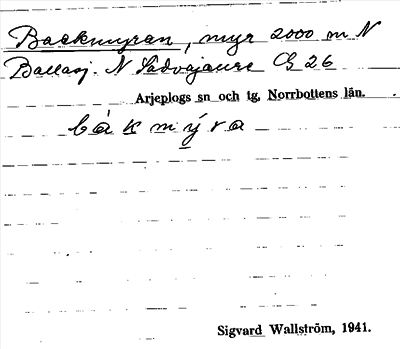 Backmyran, myr 2000 m N
Ballasj. N Sädvajaure C 26
Arjeplogs sn och tg, Norrbottens län.
bàkmýra
Sigvard Wallström, 1941.